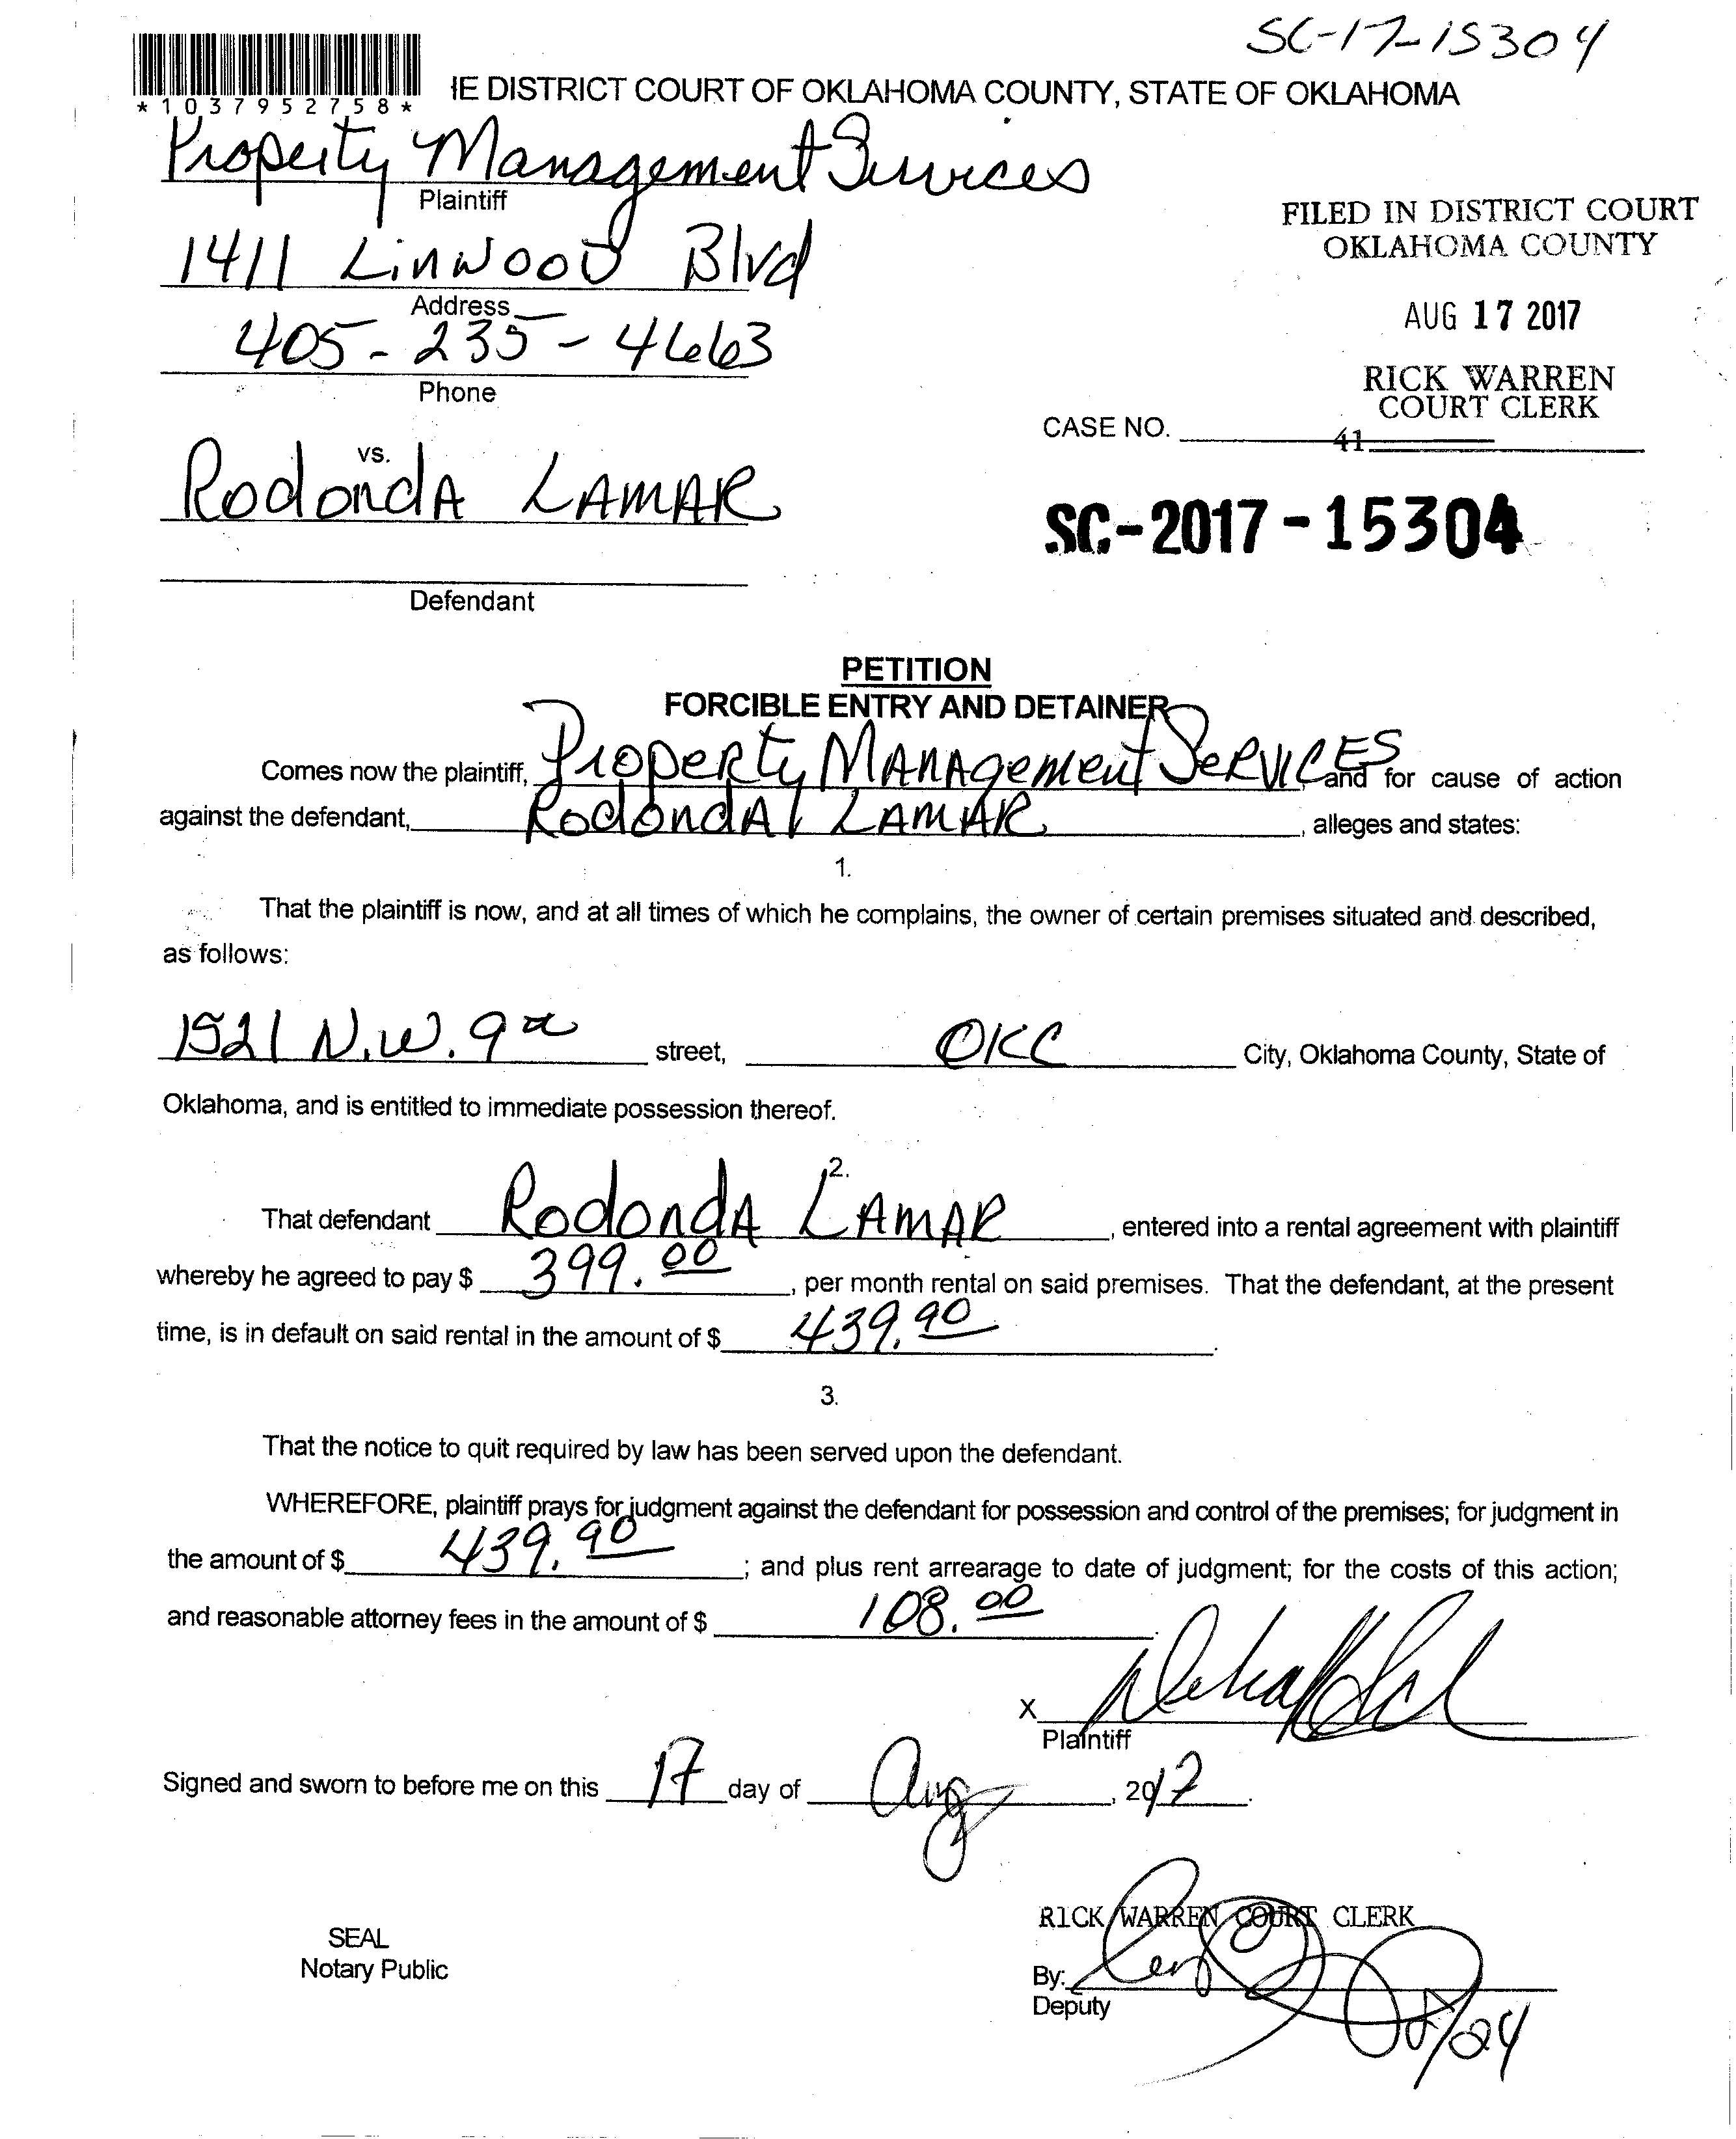 SC-17-15304
*1037952758*
IE DISTRICT COURT OF OKLAHOMA COUNTY, STATE OF OKLAHOMA
Property Management Services
Plaintiff
FILED IN DISTRICT COURT
OKLAHOMA COUNTY
1411 Linwood Blvd
Address
AUG 17 2017
405-235-4663
Phone
RICK WARREN
COURT CLERK
CASE NO.
41
vs.
Rodonda LAMAR
SC-2017-15304
Defendant
PETITION
FORCIBLE ENTRY AND DETAINER
Comes now the plaintiff, Property Management Services, and for cause of action
against the defendant, Rodonda LAMAR, alleges and states:
1.
That the plaintiff is now, and at all times of which he complains, the owner of certain premises situated and described,
as follows:
1521 N.W. 9th street, OKC City, Oklahoma County, State of
Oklahoma, and is entitled to immediate possession thereof.
2.
That defendant Rodonda LAMAR, entered into a rental agreement with plaintiff
whereby he agreed to pay $ 399.00, per month rental on said premises. That the defendant, at the present
time, is in default on said rental in the amount of $ 439.90.
3.
That the notice to quit required by law has been served upon the defendant.
WHEREFORE, plaintiff prays for judgment against the defendant for possession and control of the premises; for judgment in
the amount of $ 439.90; and plus rent arrearage to date of judgment; for the costs of this action;
and reasonable attorney fees in the amount of $ 108.00.
X
Plaintiff
Signed and sworn to before me on this 17 day of Aug, 2017.
RICK WARREN COURT CLERK
SEAL
Notary Public
By:
Deputy